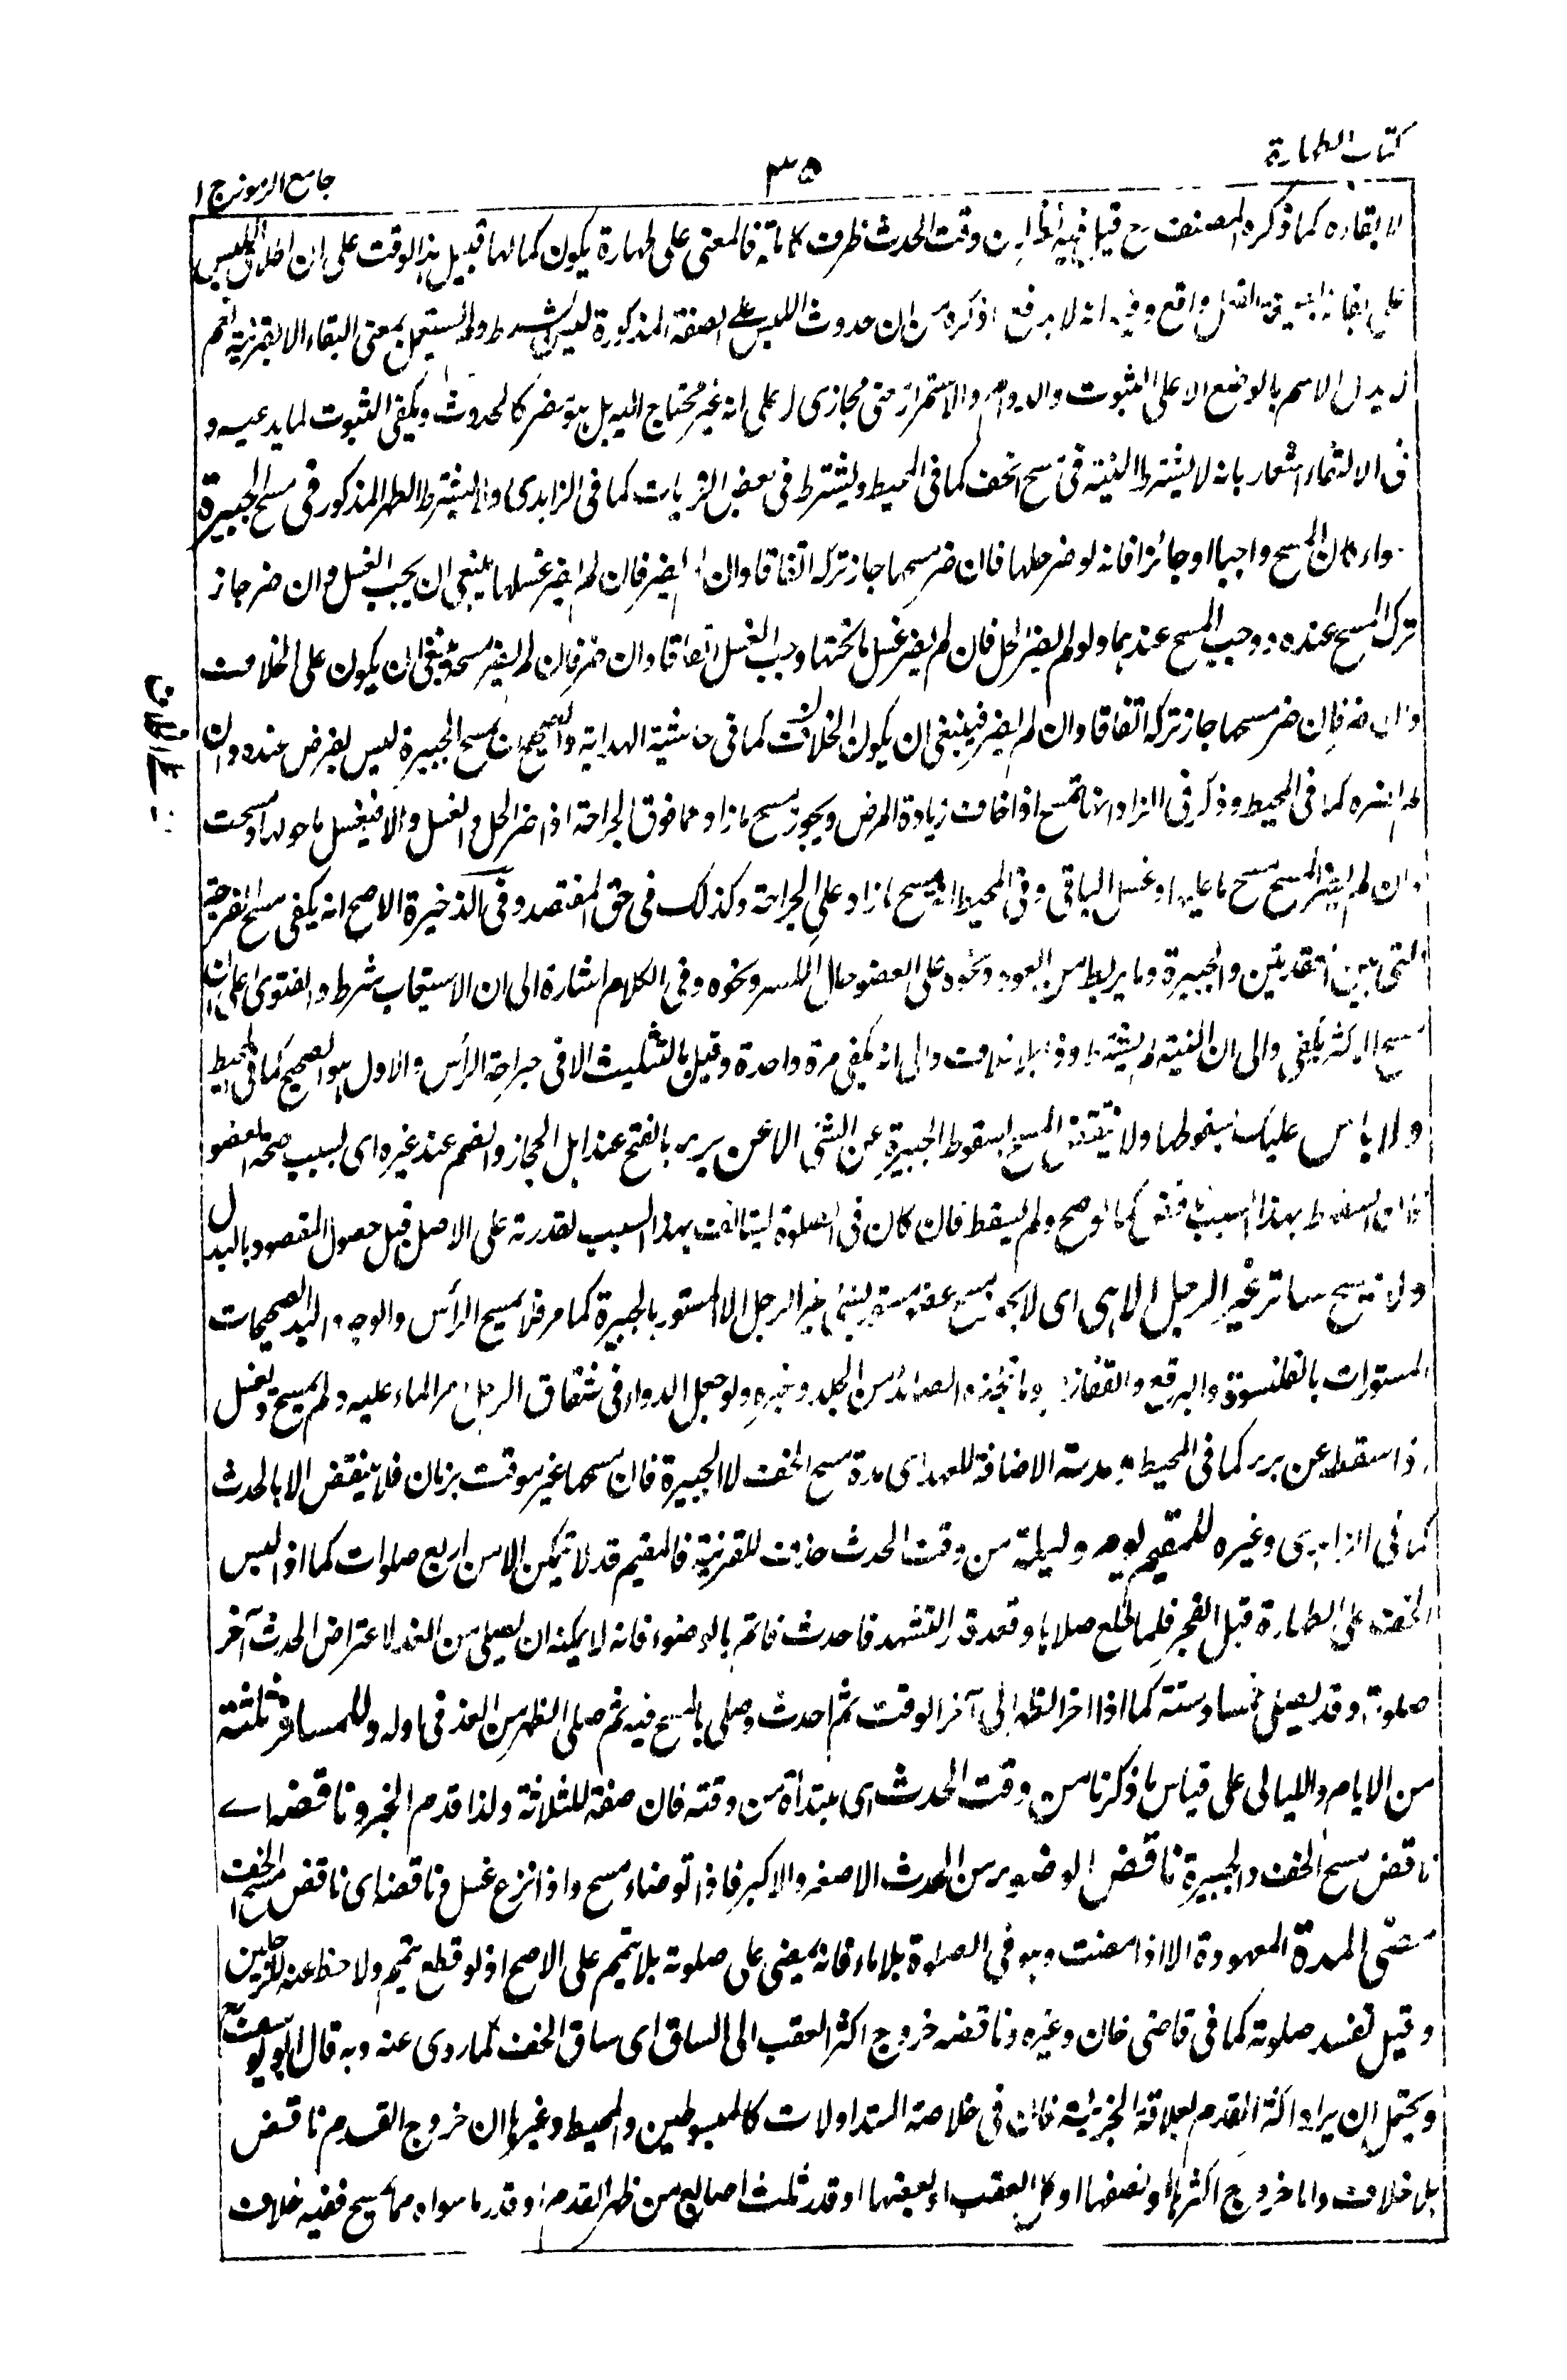 كتاب الطهارة
٣٥
جامع الرموز ج ١
لا بقاءه كما ذكره المصنف وقت الحدث ظرف كاملة فالمعنى على طهارة يكون كمالها قبيل هذا الوقت على ان اطلاق اللبس
على بقائه واقع وفيه انه لا يدفع ان حدوث اللبس على الصفة المذكورة ليس بشرط ولم يستعمل بمعنى البقاء الا بقرينة نعم
يدل الاسم بالوضع الا على الثبوت والدوام والاستمرار معنى مجازى له على انه غير محتاج اليه بل هو مضر كالحدوث ويكفى الثبوت لما يدعيه و
فى الاكتفاء اشعار بانه لا يشترط النية فى مسح الخف كما فى المحيط ويشترط فى بعض الروايات كما فى الزاهدى ولا يشترط الطهر المذكور فى مسح الجبيرة
سواء كان المسح واجبا او جائزا فانه لو ضر حلها فان ضر مسحها جاز تركه اتفاقا وان لم يضر فان لم يضر غسلها ينبغى ان يجب الغسل وان ضر جاز
ترك المسح عنده ووجب المسح عندهما ولو لم يضر الحل فان لم يضر غسل ما تحتها وجب الغسل اتفاقا وان ضر فان لم يضر مسحه ينبغى ان يكون على الخلاف
وان ضر فان ضر مسحها جاز تركه اتفاقا وان لم يضر فينبغى ان يكون الخلاف كما فى حاشية الهداية والصحيح ان مسح الجبيرة ليس بفرض عنده وان
لم يضره كما فى المحيط وذكر فى الزاد انما تمسح اذا خاف زيادة المرض ويجوز مسح ما زاد مما فوق الجراحة اذا ضر الحل والغسل والا فيغسل ما حولها ومسحت
وان لم يضر المسح مسح ما عليها وغسل الباقى وفى المحيط انه يمسح ما زاد على الجراحة وكذلك فى حق المفتصد وفى الذخيرة الاصح انه يكفى مسح الفرجة
التى بين العقدتين والجبيرة وما يربط من العود ونحوه على العضو حال الكسر ونحوه وفى الكلام اشارة الى ان الاستيعاب شرط والفتوى على ان
مسح الاكثر يكفى والى ان النية لم يشترط بلا خلاف والى انه يكفى مرة واحدة وقيل بالتثليث الا فى جراحة الرأس والاول هو الصحيح كما فى المحيط
ولا باس عليك بسقوطها ولا ينتقض المسح بسقوط الجبيرة عن الشئ الا عن برء بالفتح عند اهل الحجاز والضم عند غيره اى لسبب صحة العضو
فان السقوط بهذا السبب كما لو صح ولم يسقط فان كان فى الصلوة ليستانف بهذا السبب لقدرته على الاصل قبل حصول المقصود بالبدل
ولا يمسح ساتر غير الرجل الا هى اى لا يجوز مسح عضو مستور بشئ غير الرجل الا المستور بالجبيرة كما مر فلا يمسح الرأس والوجه واليد الصحيحات
المستورات بالقلنسوة والبرقع والقفاز وما يتخذه الصائد من الجلد وغيره ولو جعل الدواء فى شقاق الرجل مر الماء عليه ولم يمسح ويغسل
اذا سقط عن برء كما فى المحيط ومدته الاضافة للعهد اى مدة مسح الخف لا الجبيرة فان مسحها غير موقت بزمان فلا ينقض الا بالحدث
كما فى الزاهدى وغيره للمقيم يوم وليلة من وقت الحدث حذف للقرينة فالمقيم قد لا يتمكن الا من اربع صلوات كما اذا لبس
الخف على الطهارة قبل الفجر فلما طلع صلاها وقعد قدر التشهد فاحدث فاتم بالوضوء فانه لا يمكنه ان يصلى من الغد لاعتراض الحدث آخر
صلوة وقد يصلى خمسا وستة كما اذا اخر الظهر الى آخر الوقت ثم احدث وصلى بالمسح فيه ثم صلى الظهر من الغد فى اوله وللمسافر ثلثة
من الايام والليالى على قياس ما ذكرنا من وقت الحدث اى مبتدأة من وقته فان صفة للثلاثة ولذا قدم الخبر وناقضه اى
ناقض مسح الخف والجبيرة ناقض الوضوء من الحدث الاصغر والاكبر فاذا توضاء مسح واذا نزع غسل وناقضه اى ناقض مسح الخف
مضى المدة المعهودة الا اذا مضت وهو فى الصلوة بلا ماء فانه يمضى على صلوته بلا تيمم على الاصح اذ لو قطع يتيمم ولا حظ عنه للرجلين
وقيل تفسد صلوته كما فى قاضى خان وغيره وناقضه خروج اكثر العقب الى الساق اى ساق الخف كما روى عنه وبه قال ابو يوسف
ويحتمل ان يراد اكثر القدم بعلاقة الجزئية فان فى خلاصة المتداولات كالمبسوطين والمحيط وغيرها ان خروج القدم ناقض
بلا خلاف واما خروج اكثرها او نصفها او كل العقب او بعضها او قدر ثلث اصابع من ظهر القدم او قدر ما سواه مما يمسح ففيه خلاف